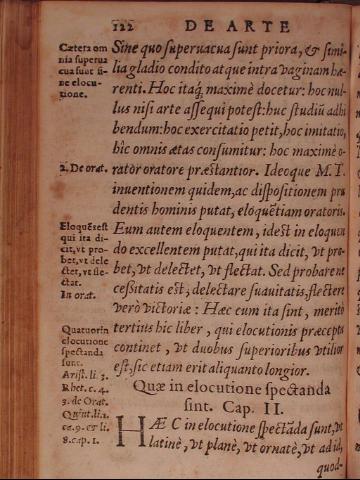 122 DE ARTE
Cætera om
nia superua
cua sunt si-
ne elocu-
tione.
2. De orat.
Eloquẽs est
qui ita di-
cit, vt pro-
bet, vt dele
ctet, vt fle-
ctat.
In orat.
Quatuor in
elocutione
spectanda
sunt.
Arist. li. 3.
Rhet. c. 4.
3. de Orat.
Quint. li. 1.
ca. 9. & li.
8. cap. 1.
Sine quo superuacua sunt priora, & simi-
lia gladio condito atque intra vaginam hæ-
renti. Hoc itaq; maximè docetur: hoc nul-
lus nisi arte assequi potest: huc studiũ adhi
bendum: hoc exercitatio petit, hoc imitatio,
hîc omnis ætas consumitur: hoc maximè o-
rator oratore præstantior. Ideoque M. T.
inuentionem quidem, ac dispositionem pru
dentis hominis putat, eloquẽtiam oratoris.
Eum autem eloquentem, idest in eloquen
do excellentem putat, qui ita dicit, vt pro-
bet, vt delectet, vt flectat. Sed probare ne
cessitatis est, delectare suauitatis, flectere
verò victoriæ: Hæc cum ita sint, meritò
tertius hic liber, qui elocutionis præcepta
continet, vt duobus superioribus vtilior
est, sic etiam erit aliquanto longior.
Quæ in elocutione spectanda
sint. Cap. II.
HÆC in elocutione spectãda sunt, vt
latinè, vt planè, vt ornatè, vt ad id,
quod-